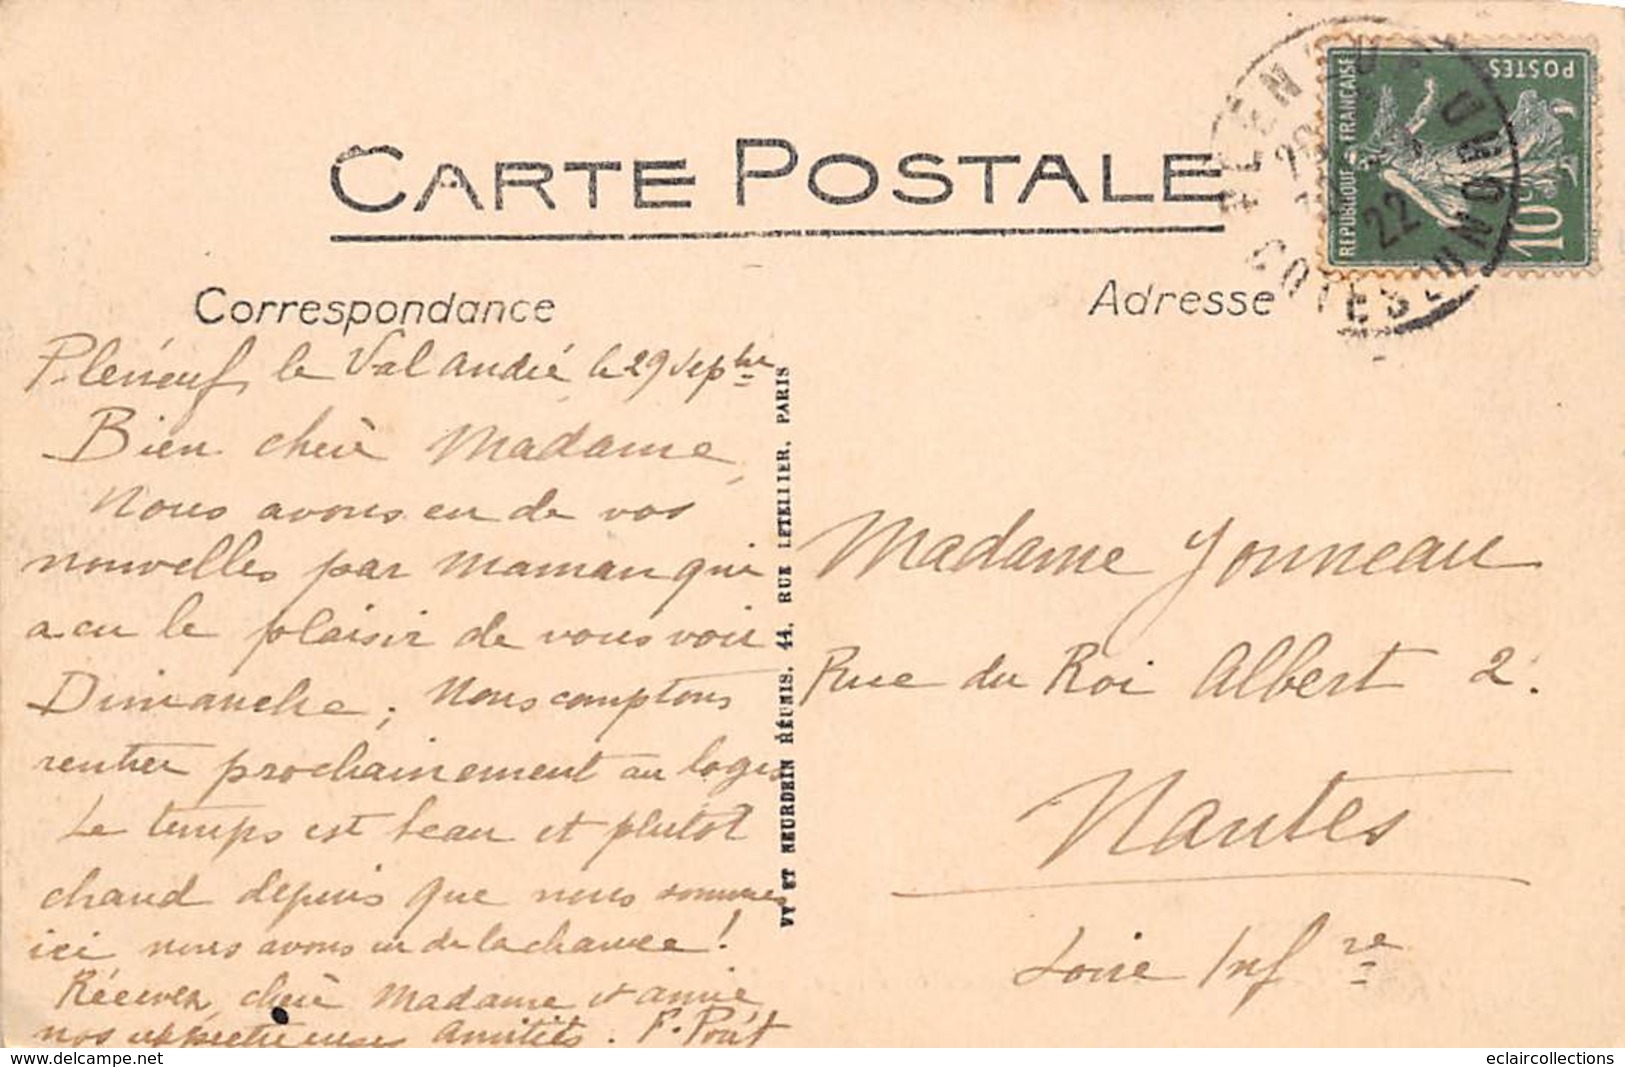 CARTE POSTALE
Correspondance
Adresse
POSTES
REPUBLIQUE FRANÇAISE
10c
22
COTES DU NORD
Pléneuf, le Val André le 29 Septbre
Bien chère Madame,
Nous avons eu de vos
nouvelles par maman qui
a eu le plaisir de vous voir
Dimanche; Nous comptons
rentrer prochainement au logis
Le temps est beau et plutôt
chaud depuis que nous sommes
ici nous avons eu de la chance!
Recevez, chère Madame et amie
nos affectueuses amitiés. F.
VY ET NEURDEIN RÉUNIS. 44. RUE LETELLIER. PARIS
Madame Yonneau
Rue du Roi Albert 2.
Nantes
Loire Infre
delcampe.net
eclaircollections